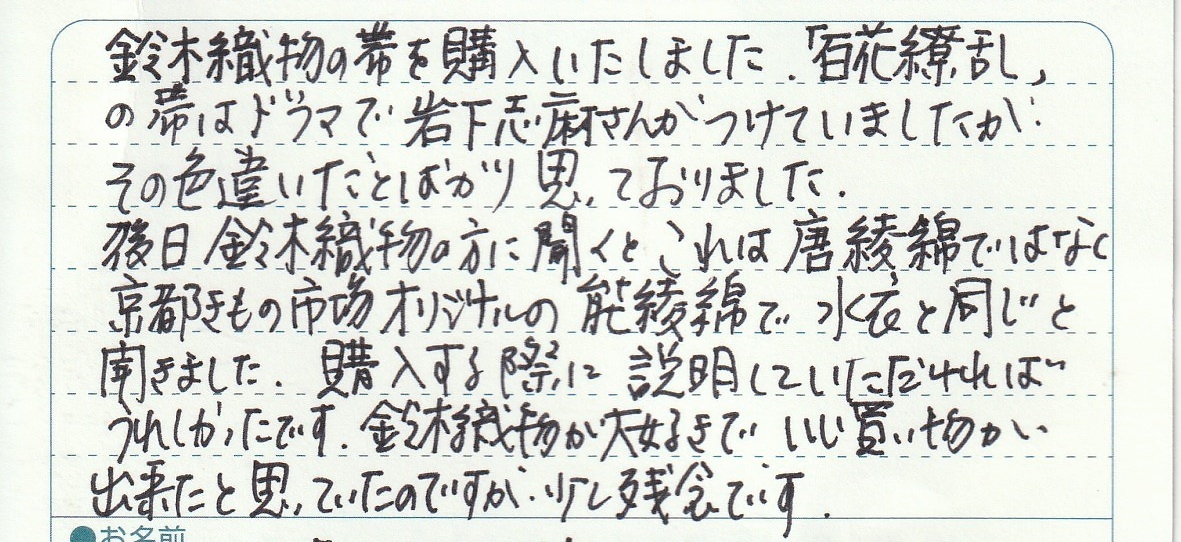 鈴木織物の帯を購入いたしました.「百花繚乱」
の帯はドラマで岩下志麻さんがつけていましたが.
その色違いだとばかり思っておりました.
後日鈴木織物の方に聞くとこれは唐綾綿ではなく
京都きもの市場オリジナルの能綾綿で水衣と同じと
聞きました.購入する際に説明していただければ
うれしかったです.鈴木織物が大好きでいい買い物が
出来たと思っていたのですが.少し残念です.
●お名前